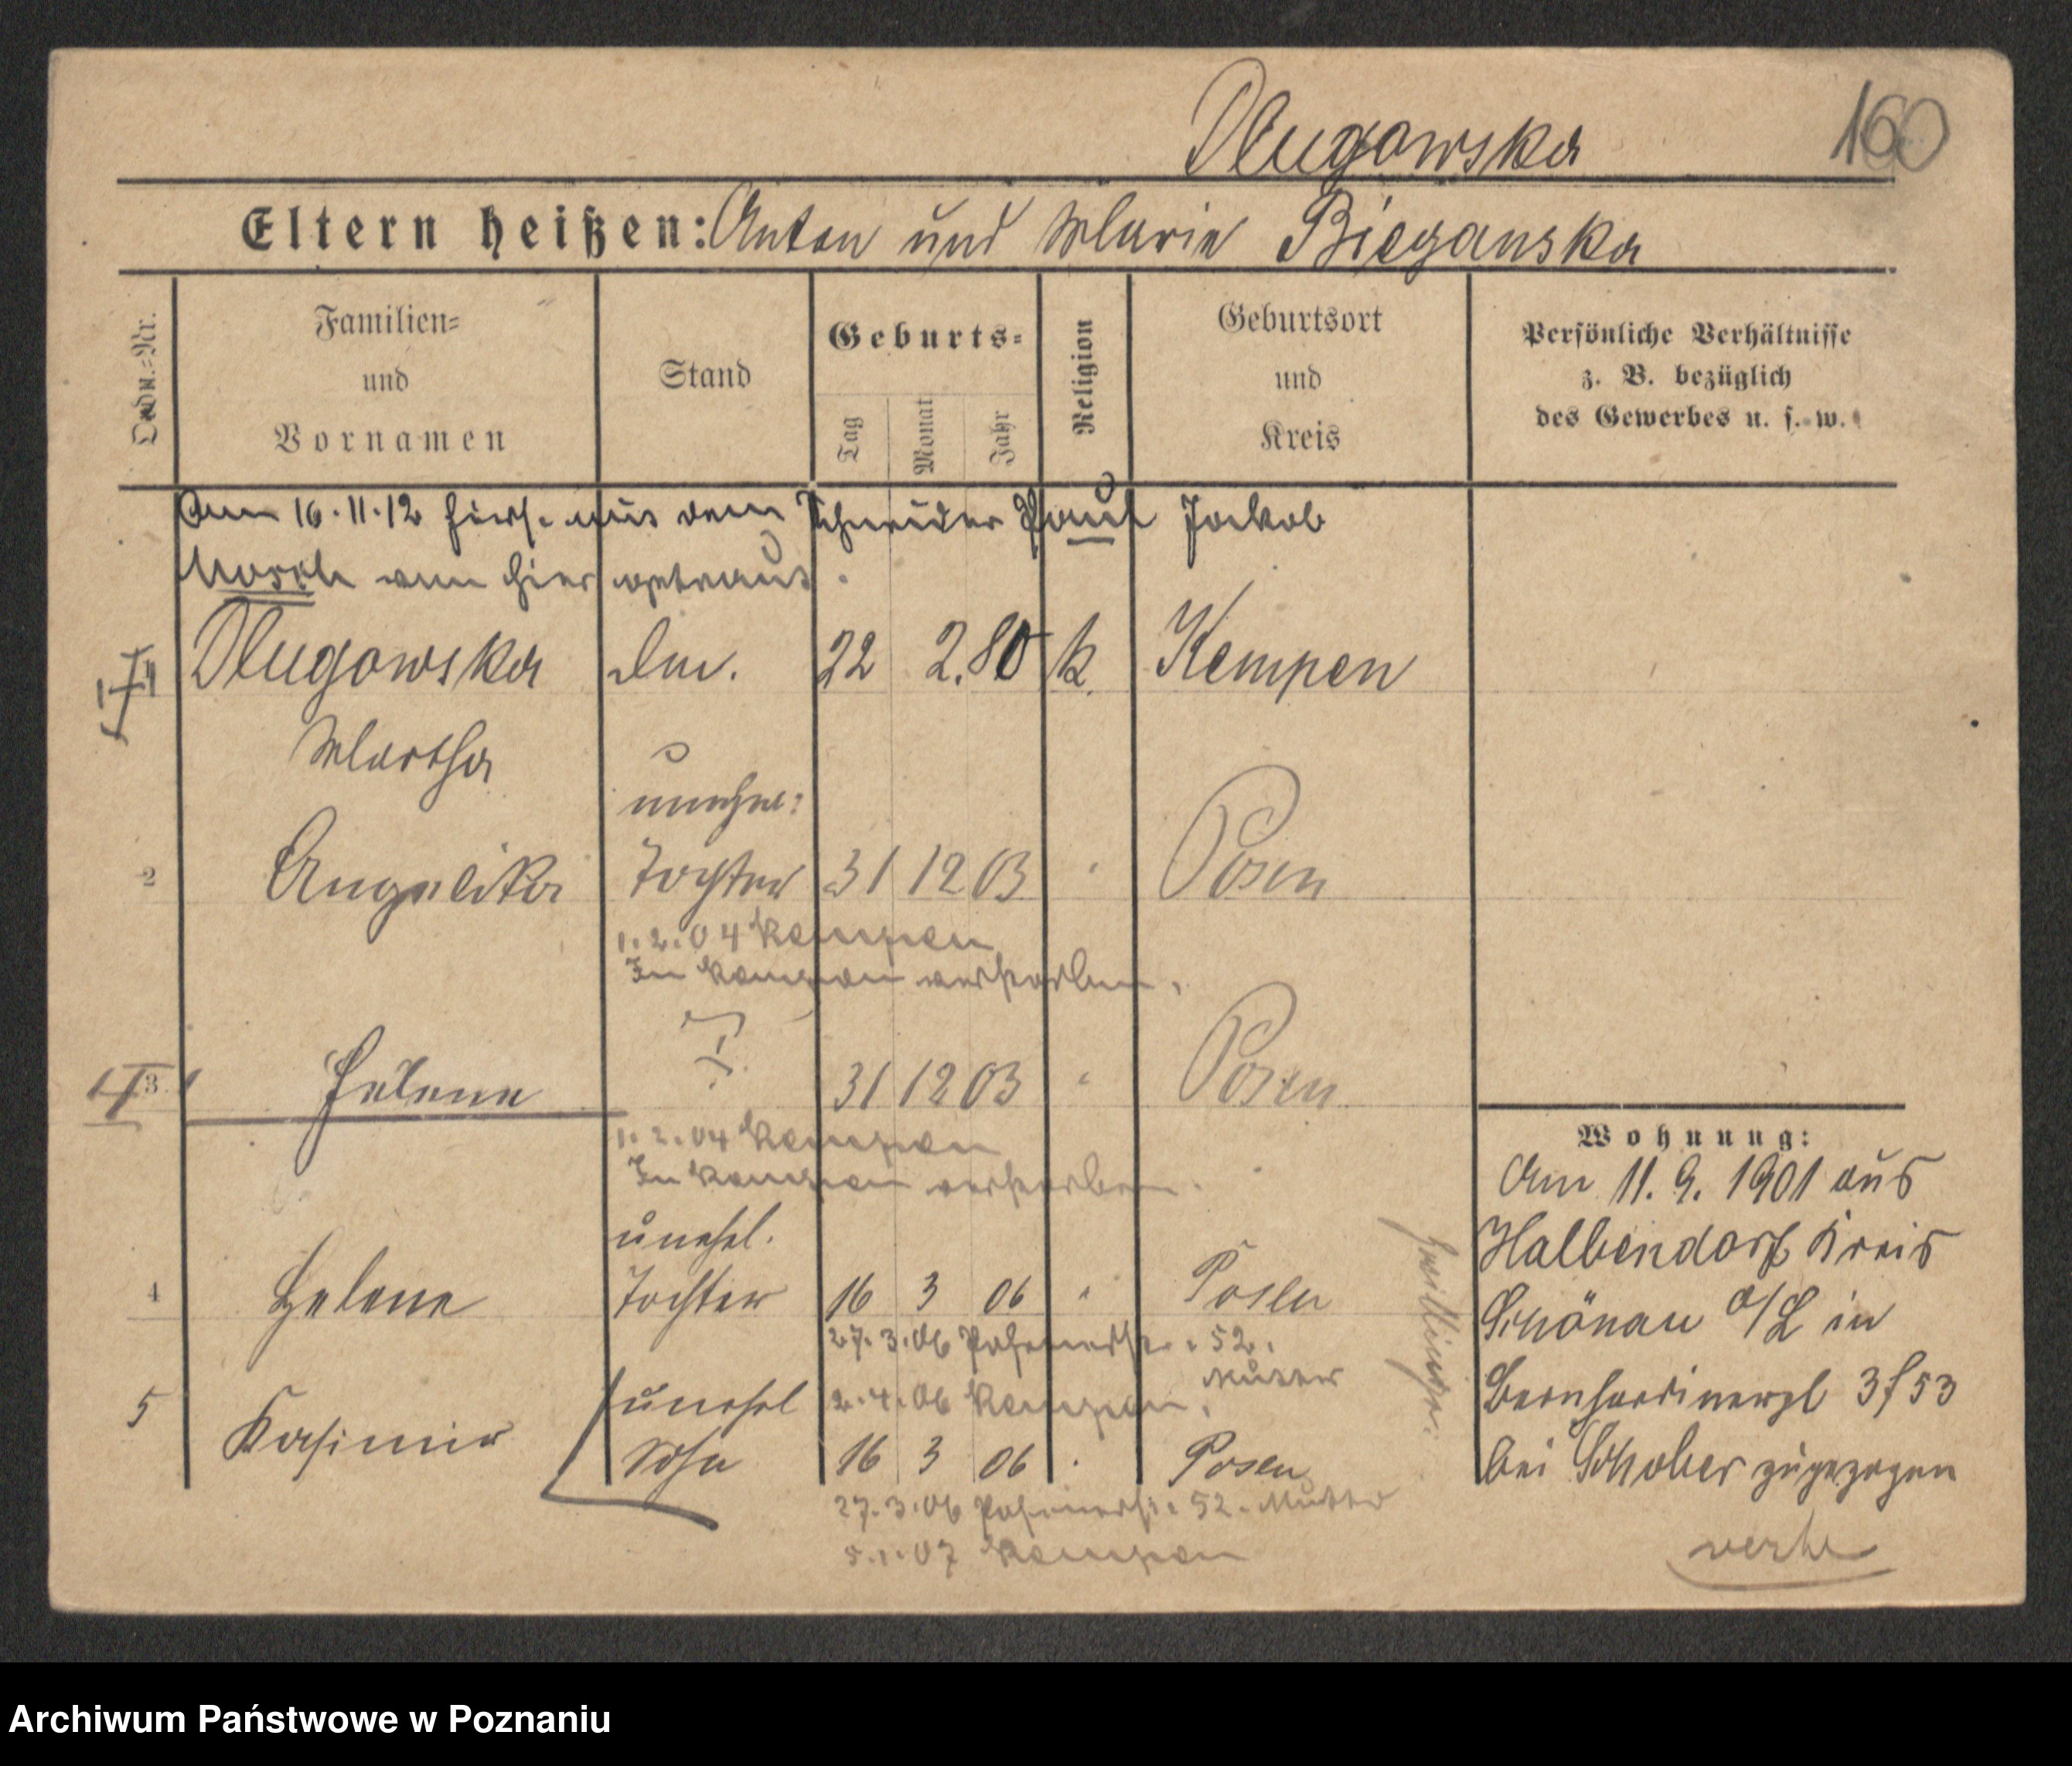 Dlugowska 160
Eltern heißen: Anton und Marie Bieganska
Ordn.-Nr.
Familien-
und
Vornamen
Stand
Geburts-
Tag
Monat
Jahr
Religion
Geburtsort
und
Kreis
Persönliche Verhältnisse
z. B. bezüglich
des Gewerbes u. s. w.
Am 16.11.12 hiers. mit dem Schneider Paul Jakob
von hier getraut.
Dlugowska 22 2. 80 k. Kempen
Martha
unehel:
2 Angelika Tochter 31 12 03 " Posen
1.2.04 Kempen
In Kempen verstorben.
3 Helene 31 12 03 " Posen
1.2.04 Kempen
In Kempen verstorben.
unehel.
4 Helene Tochter 16 3 06 " Posen
27.3.06 52.
Mutter
5 Kasimir unehel 2.4.06 Kempen.
Sohn 16 3 06 " Posen
27.3.06 52. Mutter
5.1.07 Kempen
Zwillinge.
Wohnung:
Am 11. 9. 1901 aus
Halbendorf Kreis
Schönau O/L in
Bernhardinerpl 3 f 53
bei Schober zugezogen
Archiwum Państwowe w Poznaniu